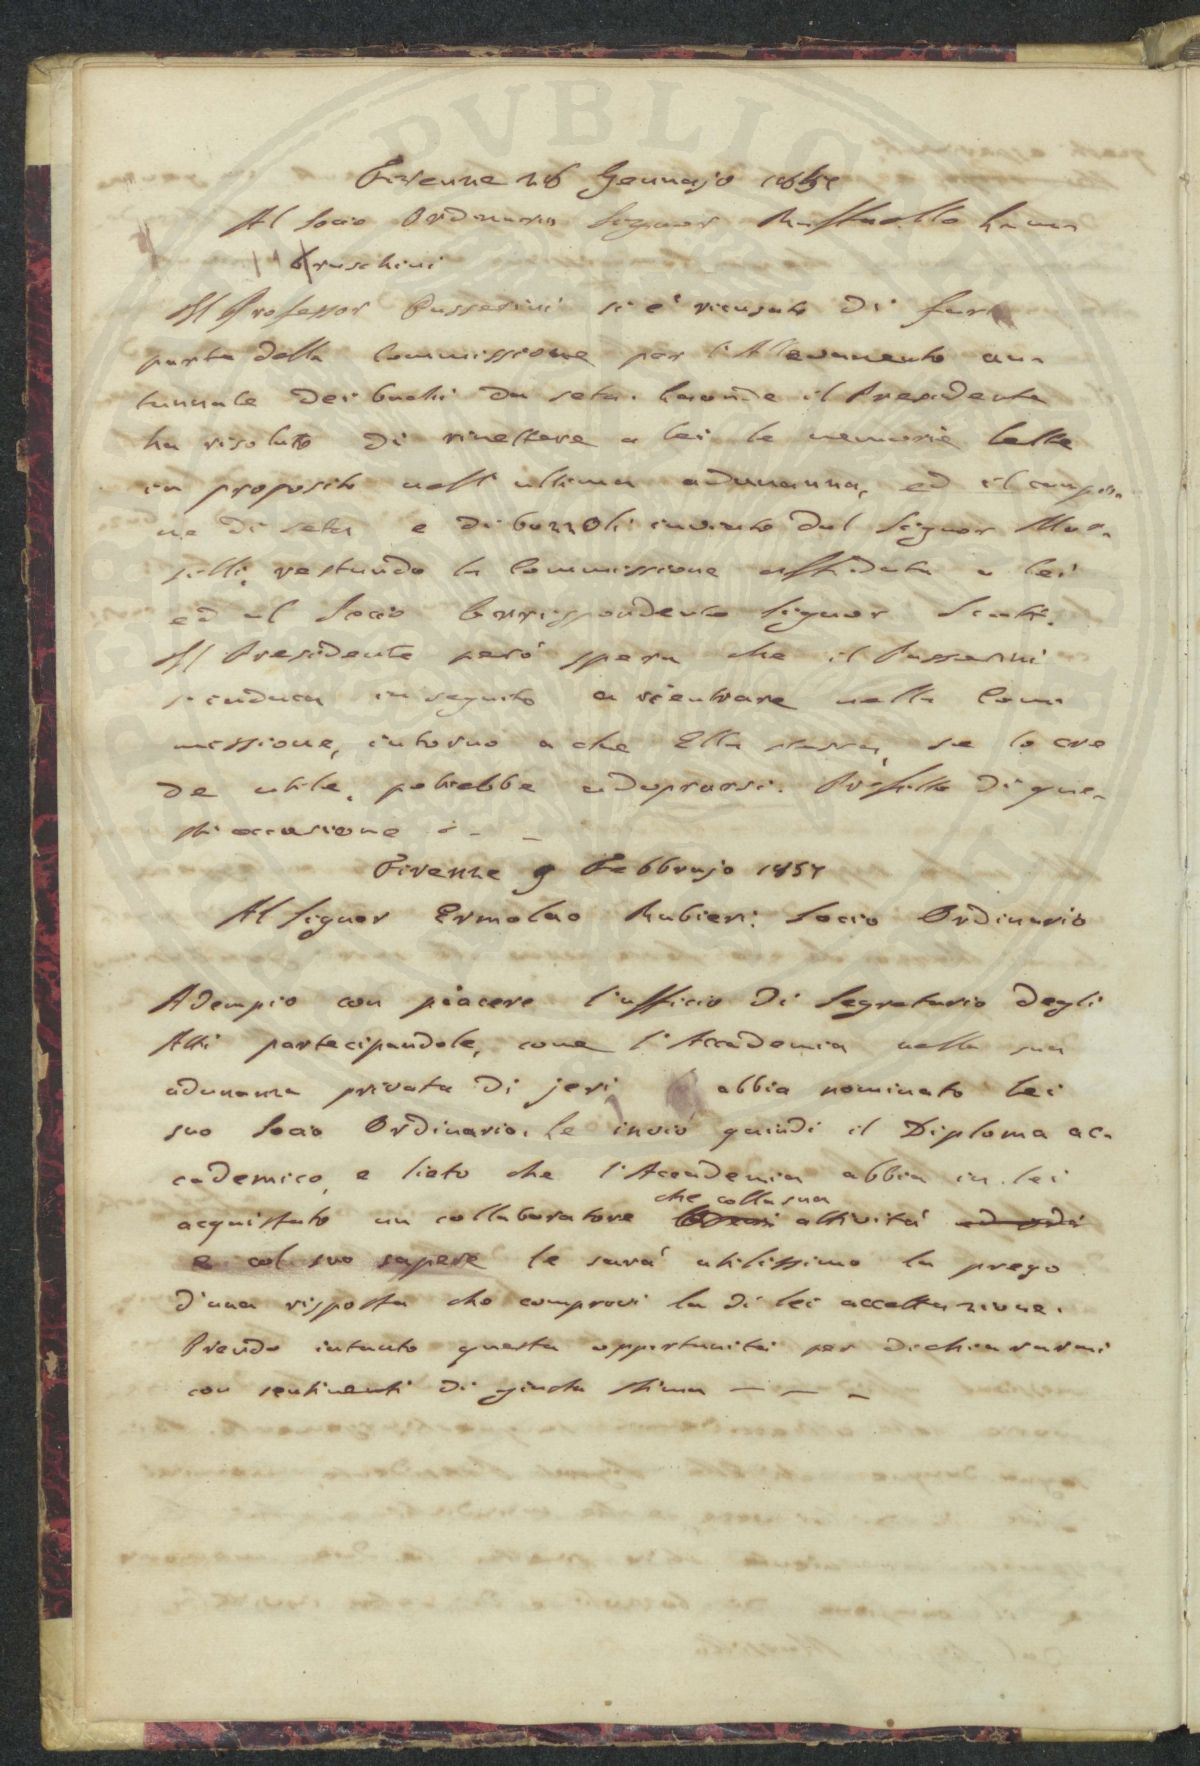 PVBLIC
Firenne 28 Gennajo 1857
Al Socio Ordinario Signor Raffaello Lam
bruschini
Il Professor Passerini si è ricusato di far
parte della Commissione per l'Allevamento au-
tunnale dei bachi da seta. Laonde il Presidente
ha risoluto di rimettere a lei le memorie lette
in proposito nell'ultima adunanna, ed il campio-
ne di seta e di bozzoli inviato dal Signor Mar-
selli, restando la Commissione affidata a lei
ed al Socio Corrispondente Signor Scoti.
Il Presidente però spera che il Passerini
s'induca in seguito a rientrare nella Com
missione, intorno a che Ella stessa, se lo cre
de utile, potrebbe adoprarsi. Profitto di que-
st'occasione
Firenze 9 Febbrajo 1857
Al Signor Ermolao Rubieri: Socio Ordinario
Adempio con piacere l'ufficio di Segretario degli
Atti partecipandole, come l'Accademia nella sua
adunanza privata di jeri abbia nominato lei
suo Socio Ordinario. Le invio quindi il Diploma ac-
cademico, e lieto che l'Accademia abbia in lei
acquistato un collaboratore che colla sua attività
e col suo sapere le sarà utilissimo la prego
d'una risposta che comprovi la di lei accettazione.
Prendo intanto questa opportunità per dichiararmi
con sentimenti di giusta stima - - -